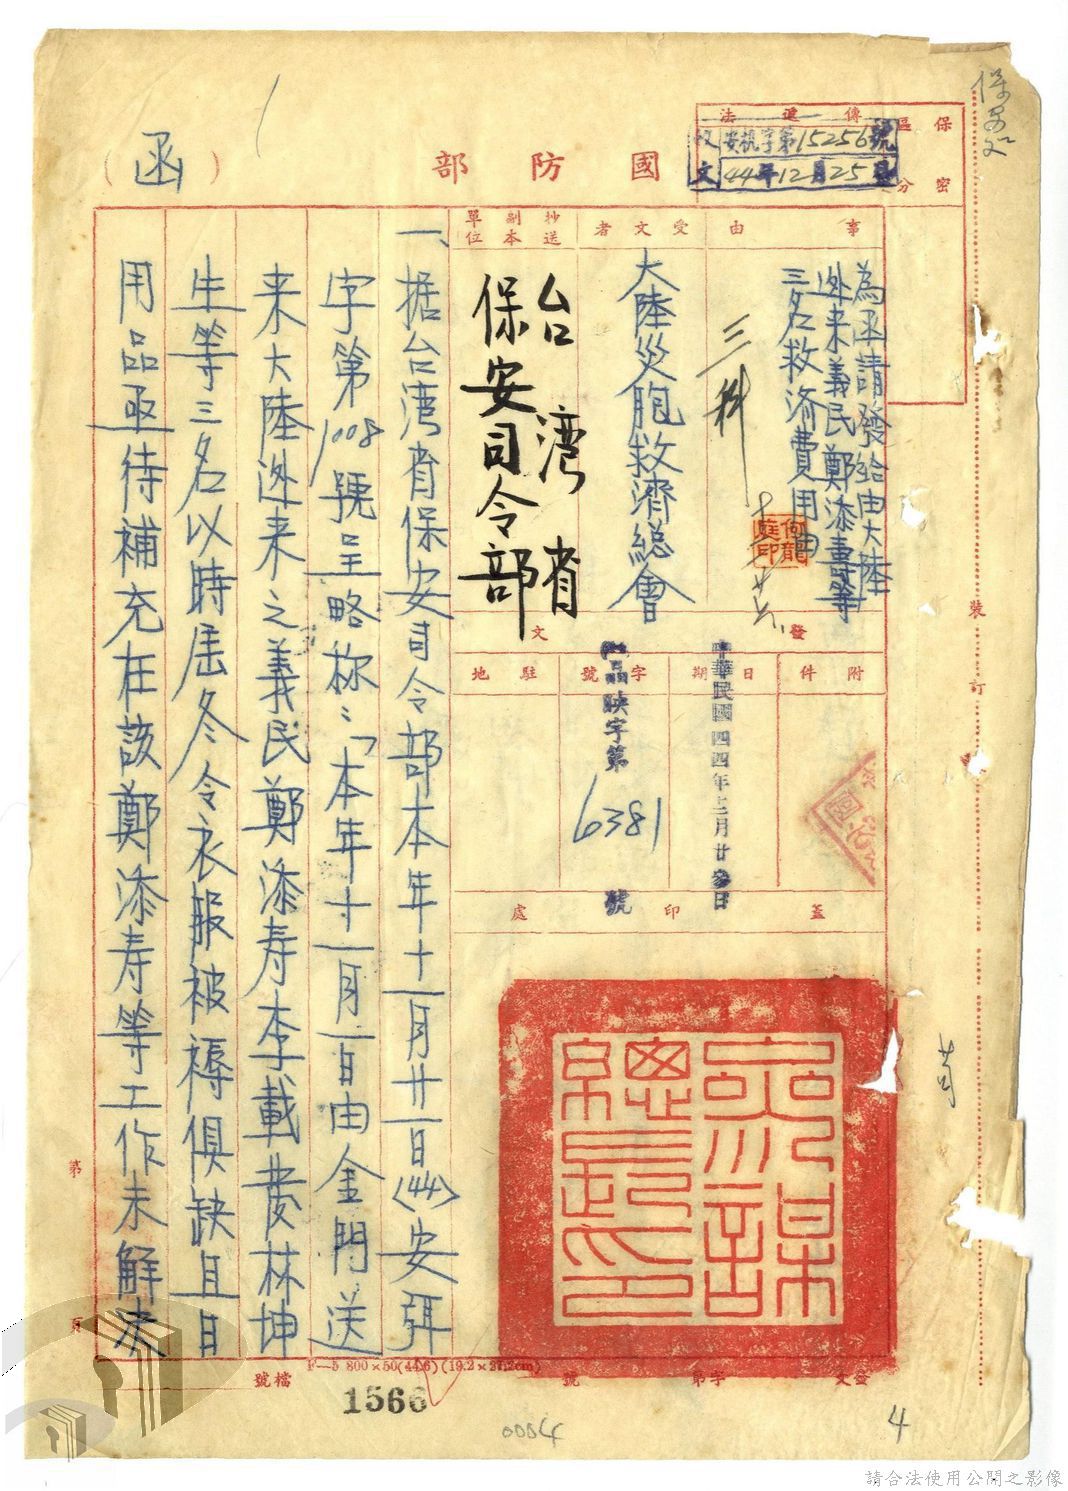 國防部
（函）
保密區分
傳遞法
收文
安机字第15256號
44年12月25日
事由
為函請發給由大陸
逃来義民鄭添壽等
三名救济費用由
三科
何龍庭印
受文者
大陸災胞救济總會
抄送副本單位
台灣省
保安司令部
發文
附件
日期
中華民國四四年十二月廿參日
字號
昌映字第6381號
駐地
蓋印處
參謀總長之印
一、据台湾省保安司令部本年十一月廿一日(44)安弭
字第1008號呈略称：「本年十一月一日由金門送
来大陸逃来之義民鄭添寿李載發林坤
生等三名以時届冬令衣服被褥俱缺且日
用品亟待補充在該鄭添寿等工作未解决
裝
訂
第
頁
F—5 800×50(44.6)(19.2×27.2cm)
檔號
發文
字第
號
1566
0004
4
請合法使用公開之影像